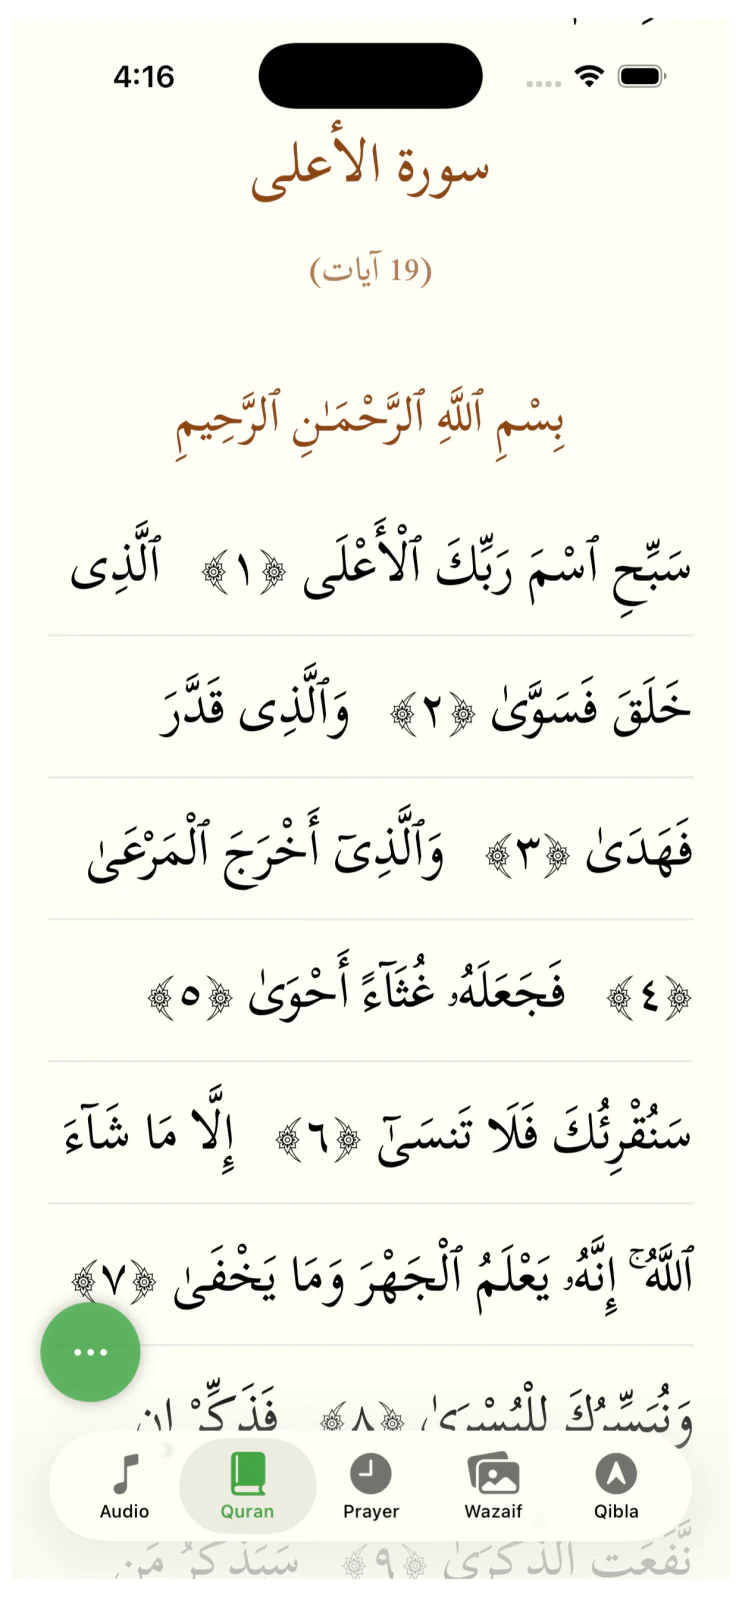 4:16
سورة الأعلى
(19 آيات)
بِسْمِ ٱللَّهِ ٱلرَّحْمَـٰنِ ٱلرَّحِيمِ
سَبِّحِ ٱسْمَ رَبِّكَ ٱلْأَعْلَى ﴿١﴾ ٱلَّذِى
خَلَقَ فَسَوَّىٰ ﴿٢﴾ وَٱلَّذِى قَدَّرَ
فَهَدَىٰ ﴿٣﴾ وَٱلَّذِىٓ أَخْرَجَ ٱلْمَرْعَىٰ
﴿٤﴾ فَجَعَلَهُۥ غُثَآءً أَحْوَىٰ ﴿٥﴾
سَنُقْرِئُكَ فَلَا تَنسَىٰٓ ﴿٦﴾ إِلَّا مَا شَآءَ
ٱللَّهُ ۚ إِنَّهُۥ يَعْلَمُ ٱلْجَهْرَ وَمَا يَخْفَىٰ ﴿٧﴾
وَنُيَسِّرُكَ لِلْيُسْرَىٰ ﴿٨﴾ فَذَكِّرْ إِن
Audio Quran Prayer Wazaif Qibla
نَّفَعَتِ ٱلذِّكْرَىٰ ﴿٩﴾ سَيَذَّكَّرُ مَن